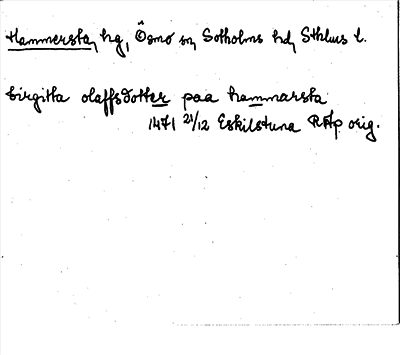 Hammersta, hg, Ösmo sn, Sotholms hd, Sthlms l.
birgitta olaffsdotter paa hammarsta
1471 21/12 Eskilstuna RAp orig.